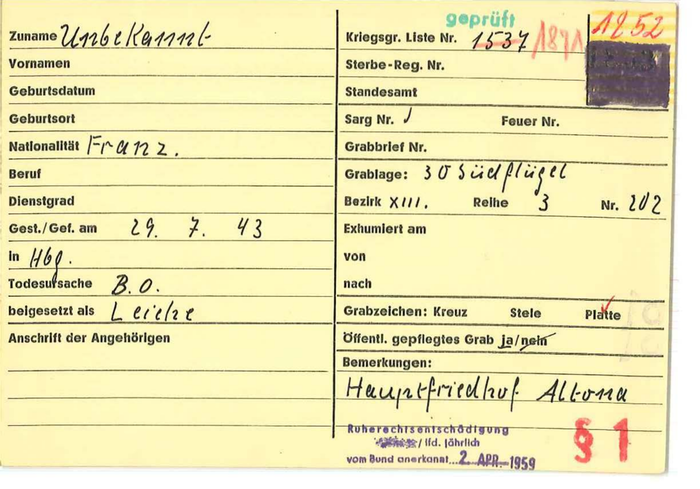 geprüft
1252
Zuname Unbekannt
Kriegsgr. Liste Nr. 1537 1871
Vornamen
Sterbe-Reg. Nr.
Geburtsdatum
Standesamt
Geburtsort
Sarg Nr. Feuer Nr.
Nationalität Franz.
Grabbrief Nr.
Beruf
Grablage: 30 Südflügel
Dienstgrad
Bezirk XIII. Reihe 3 Nr. 202
Gest./Gef. am 29. 7. 43
Exhumiert am
in Hbg.
von
Todesursache B.O.
nach
beigesetzt als Leiche
Grabzeichen: Kreuz Stele Platte
Anschrift der Angehörigen
Öffentl. gepflegtes Grab ja/nein
Bemerkungen:
Hauptfriedhof Altona
Ruherechtsentschädigung
/ lfd. jährlich
vom Bund anerkannt 2. APR. 1959
§ 1